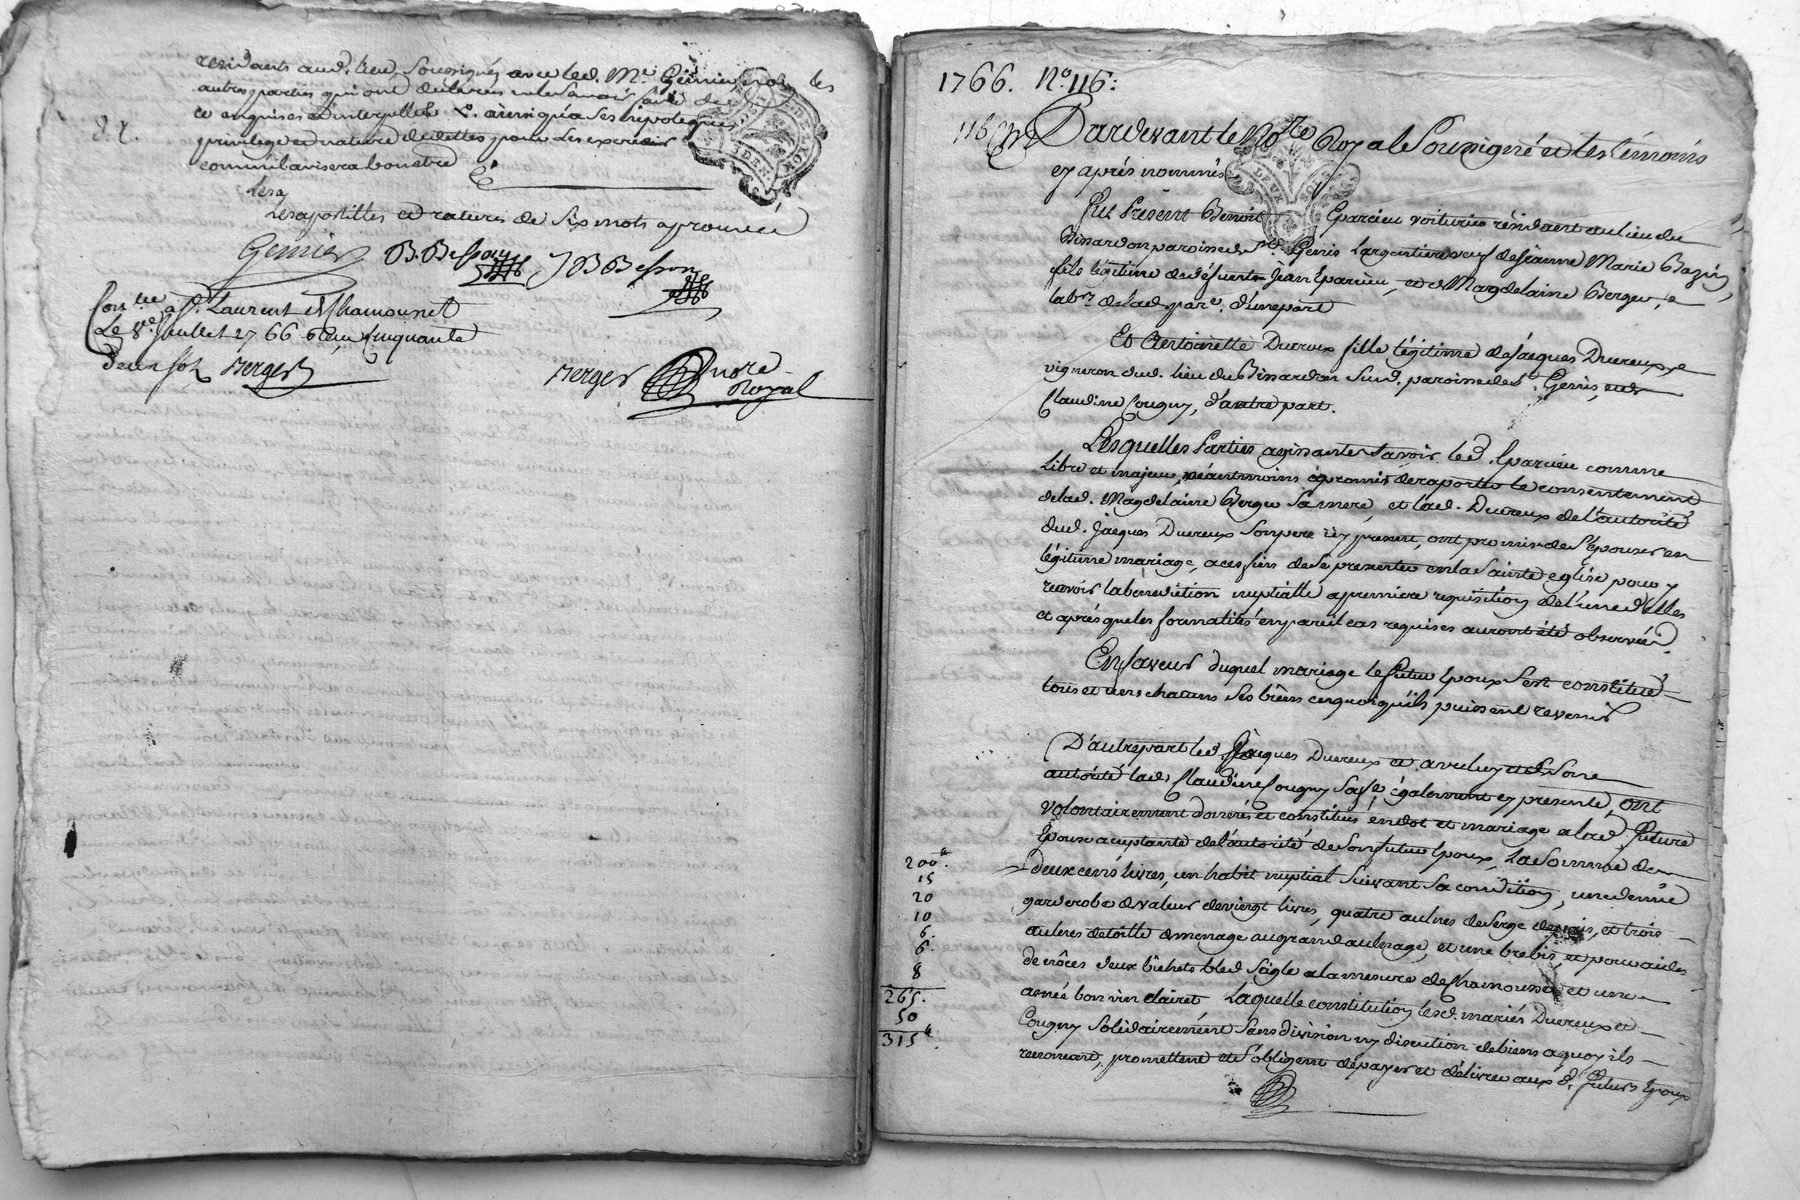 residents aud. lieu soussignés avec led. Me. Genier, non les
autres parties qui ont déclarés ne le savoir faire de
ce enquises et interpellés &. ainsi qu'a ses hipoteques
privilege et nature de dettes pour les exercer
comm'il avisera bon etre
d. r.
Les a
Les apostilles et ratures de six mots aprouvée
Genier B. Besson J B Besson
Con.lle a St. Laurent de Chamounet
Le 8e. Juillet 1766 Reçu Cinquante
deux sols Berger
Berger Nore Royal
1766. No. 116:
116 Pardevant le No.re Royal Soussigné et les témoins
cy après nommés
fut Présent Benoit Eparcieu voiturier résidant au lieu du
Bissardon paroisse de St. Genis Largentiere veuf de Jeanne Marie Bazin,
fils légitime de défunt Jean Eparcieu, et de Magdelaine Berger,
lab.r de lad. par.e. d'une part
Et Antoinette Ducreux fille légitime de Jacques Ducreux
vigneron dud. lieu du Bissardon sud. paroisse de St. Genis, et de
Claudine Cougny, d'autre part.
Lesquelles Parties agissantes savoir led. Eparcieu comme
libre et majeur, néantmoins a promis de raporter le consentement
de lad. Magdelaine Berger sa mere, et lad. Ducreux de l'autorité
dud. Jacques Ducreux son pere icy present, ont promis de s'épouser en
légitime mariage, a ces fins de se presenter en la Sainte eglise pour y
recevoir la benediction nuptialle a premiere requisition de l'une d'elles
et après que les formalités en pareil cas requises auront été observées.
En faveur duquel mariage le futur Epoux s'est constitué
tous et uns chacuns ses biens en quoi qu'ils puissent revenir
D'autre part led. Jacques Ducreux et avec luy et de son
autorité lad. Claudine Cougny sa fe. également cy presente, ont
volontairement donnés et constitués en dot et mariage a lad. future
Epouse acceptante de l'autorité de son futur Epoux, la somme de
deux cens livres, un habit nuptial suivant sa condition, une denrie
garderobe de valeur de vingt livres, quatre aulnes de serge de païs, et trois
aulnes de toille de menage au grand aulnage, et une brebis, et pour aides
de nôces deux bichets bled sègle a la mesure de Chamousset et une
anée bon vin clairet Laquelle constitution lesd. mariés Ducreux et
Cougny solidairement sans division ny discution de biens a quoy ils
renoncent, promettent et s'obligent de payer et délivrer aux d. futurs Epoux
200#.
15
20
10
6.
6.
8
265.
50
315#.